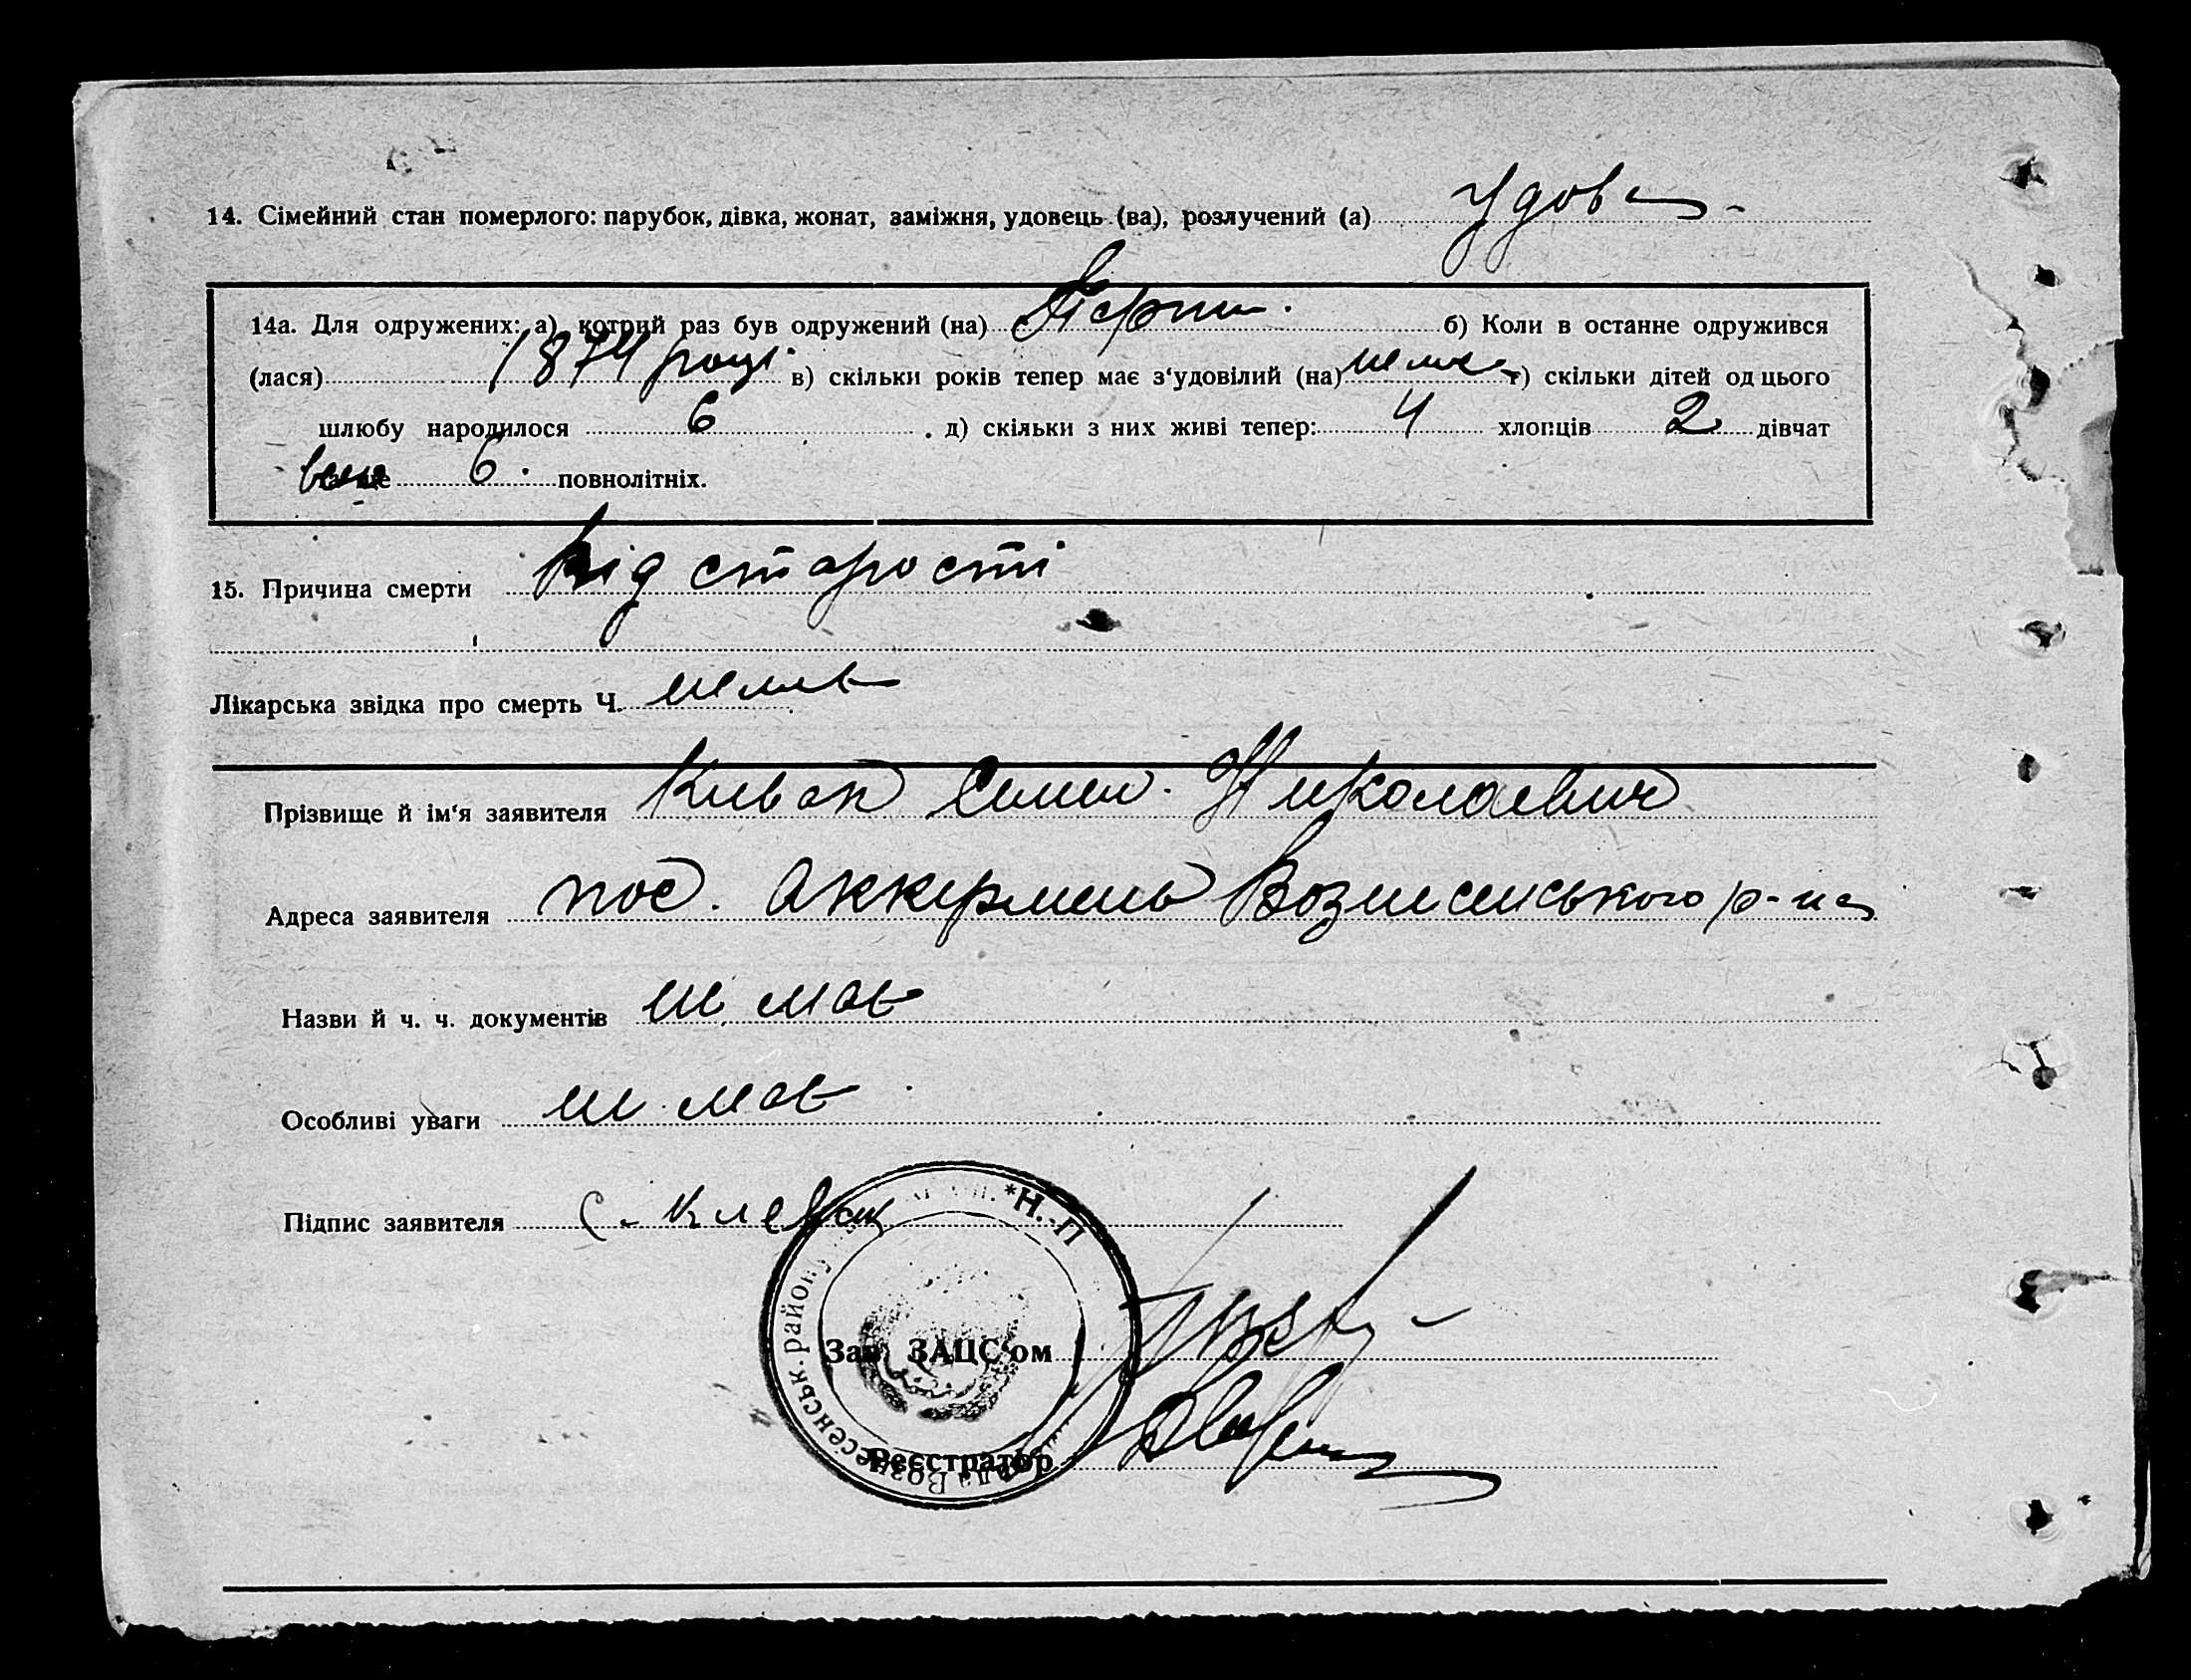 14. Сімейний стан померлого: парубок, дівка, жонат, заміжня, удовець (ва), розлучений (а) удова
14а. Для одружених: а) котрий раз був одружений (на) Перши. б) Коли в останне одружився
(лася) 1874 році в) скільки років тепер має з‘удовілий (на) г) скільки дітей од цього
шлюбу народилося 6 . д) скільки з них живі тепер: 4 хлопців 2 дівчат
6. повнолітніх.
15. Причина смерти Від старості
Лікарська звідка про смерть Ч. нимає
Прізвище й ім‘я заявителя Николаевич
Адреса заявителя пос. Аккермень Вознисинського р-на
Назви й ч. ч. документів ни має
Особливі уваги ни має
Підпис заявителя С. Клевак
Н.-П
Вознесенськ. району
Зав ЗАЦС‘ом
Реєстратор